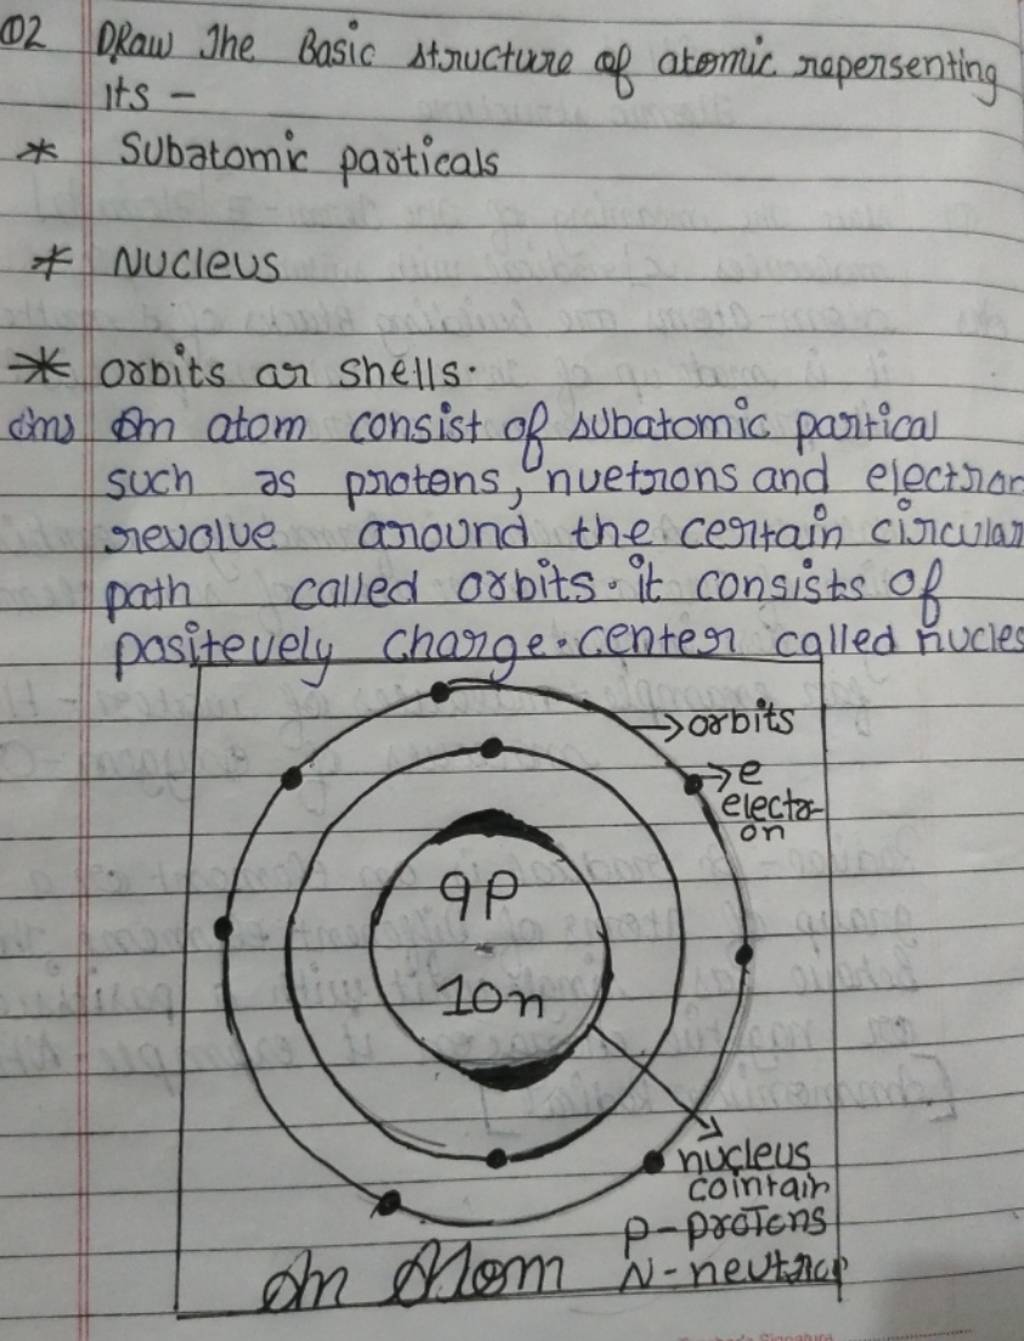 Q2 DRaw The Basic structure of atomic repersenting
its -
* Subatomic particals
* Nucleus
* orbits or shells.
Ans An atom consist of subatomic partical
such as protons, nuetrons and electron
revolve around the certain circular
path called orbits. it consists of
positevely charge.center called nucles
→orbits
→e
electr-
on
9P
10n
nucleus
cointain
P-protons
N-neutron
An Atom